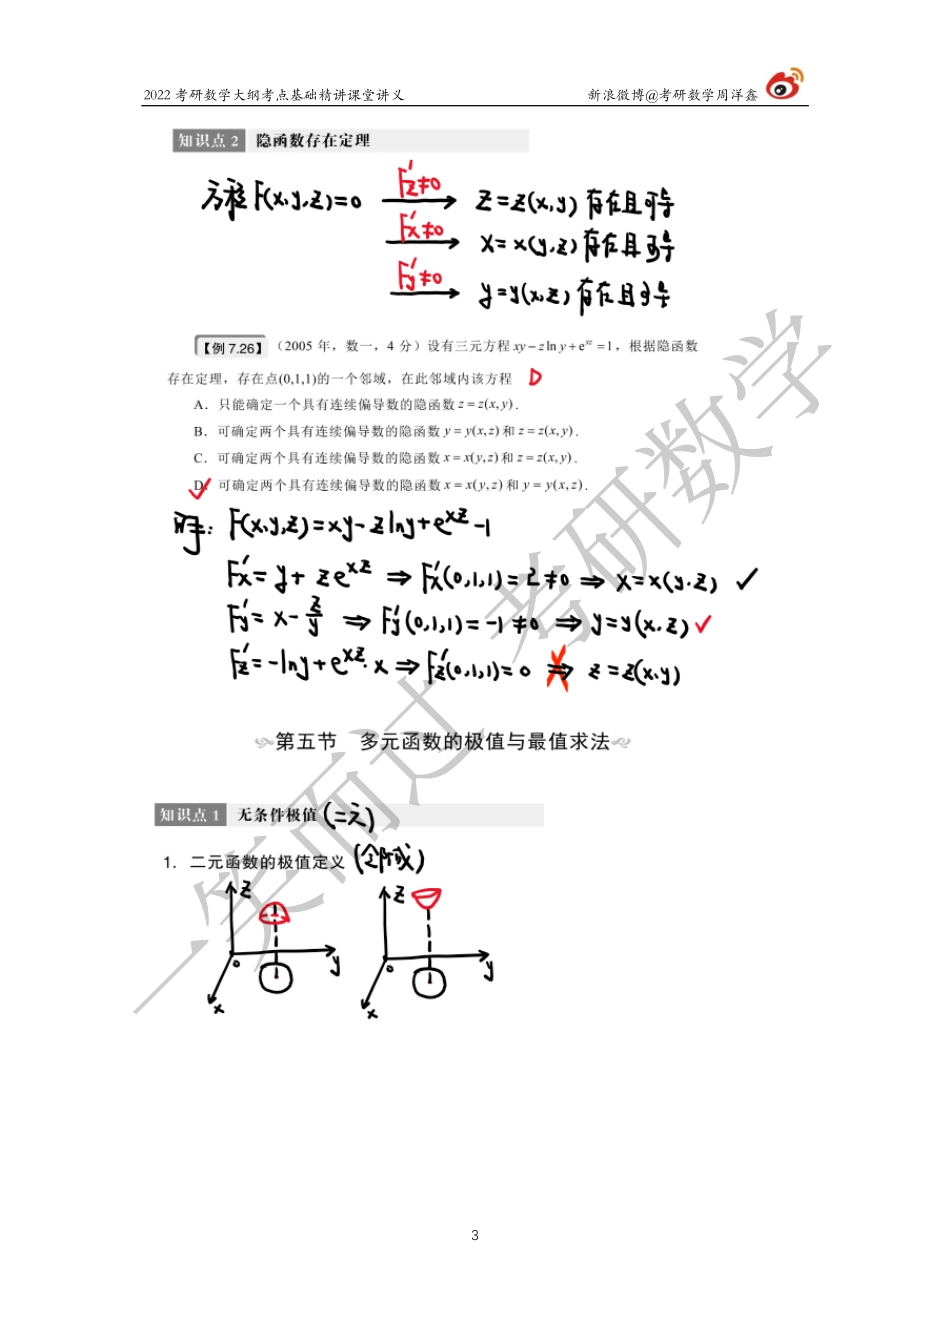 2022 考研数学大纲考点基础精讲课堂讲义 新浪微博@考研数学周洋鑫
知识点 2 隐函数存在定理
方程 F(x,y,z)=0 F'z≠0 z=z(x,y) 存在且可导
F'x≠0 x=x(y,z) 存在且可导
F'y≠0 y=y(x,z) 存在且可导
【例 7.26】（2005 年，数一，4 分）设有三元方程 xy − z ln y + e^{xz} = 1，根据隐函数
存在定理，存在点(0,1,1)的一个邻域，在此邻域内该方程 D
A．只能确定一个具有连续偏导数的隐函数 z = z(x, y).
B．可确定两个具有连续偏导数的隐函数 y = y(x, z) 和 z = z(x, y).
C．可确定两个具有连续偏导数的隐函数 x = x(y, z) 和 z = z(x, y).
D．可确定两个具有连续偏导数的隐函数 x = x(y, z) 和 y = y(x, z).
解：F(x,y,z)=xy-zlny+e^{xz}-1
F'x=y+ze^{xz} ⇒ F'x(0,1,1)=2≠0 ⇒ x=x(y,z) ✓
F'y=x-z/y ⇒ F'y(0,1,1)=-1≠0 ⇒ y=y(x,z) ✓
F'z=-lny+e^{xz}·x ⇒ F'z(0,1,1)=0 ⇒ z=z(x,y)
第五节 多元函数的极值与最值求法
知识点 1 无条件极值 (二元)
1. 二元函数的极值定义
z z
o y o y
x x
一笑而过 考研数学
3